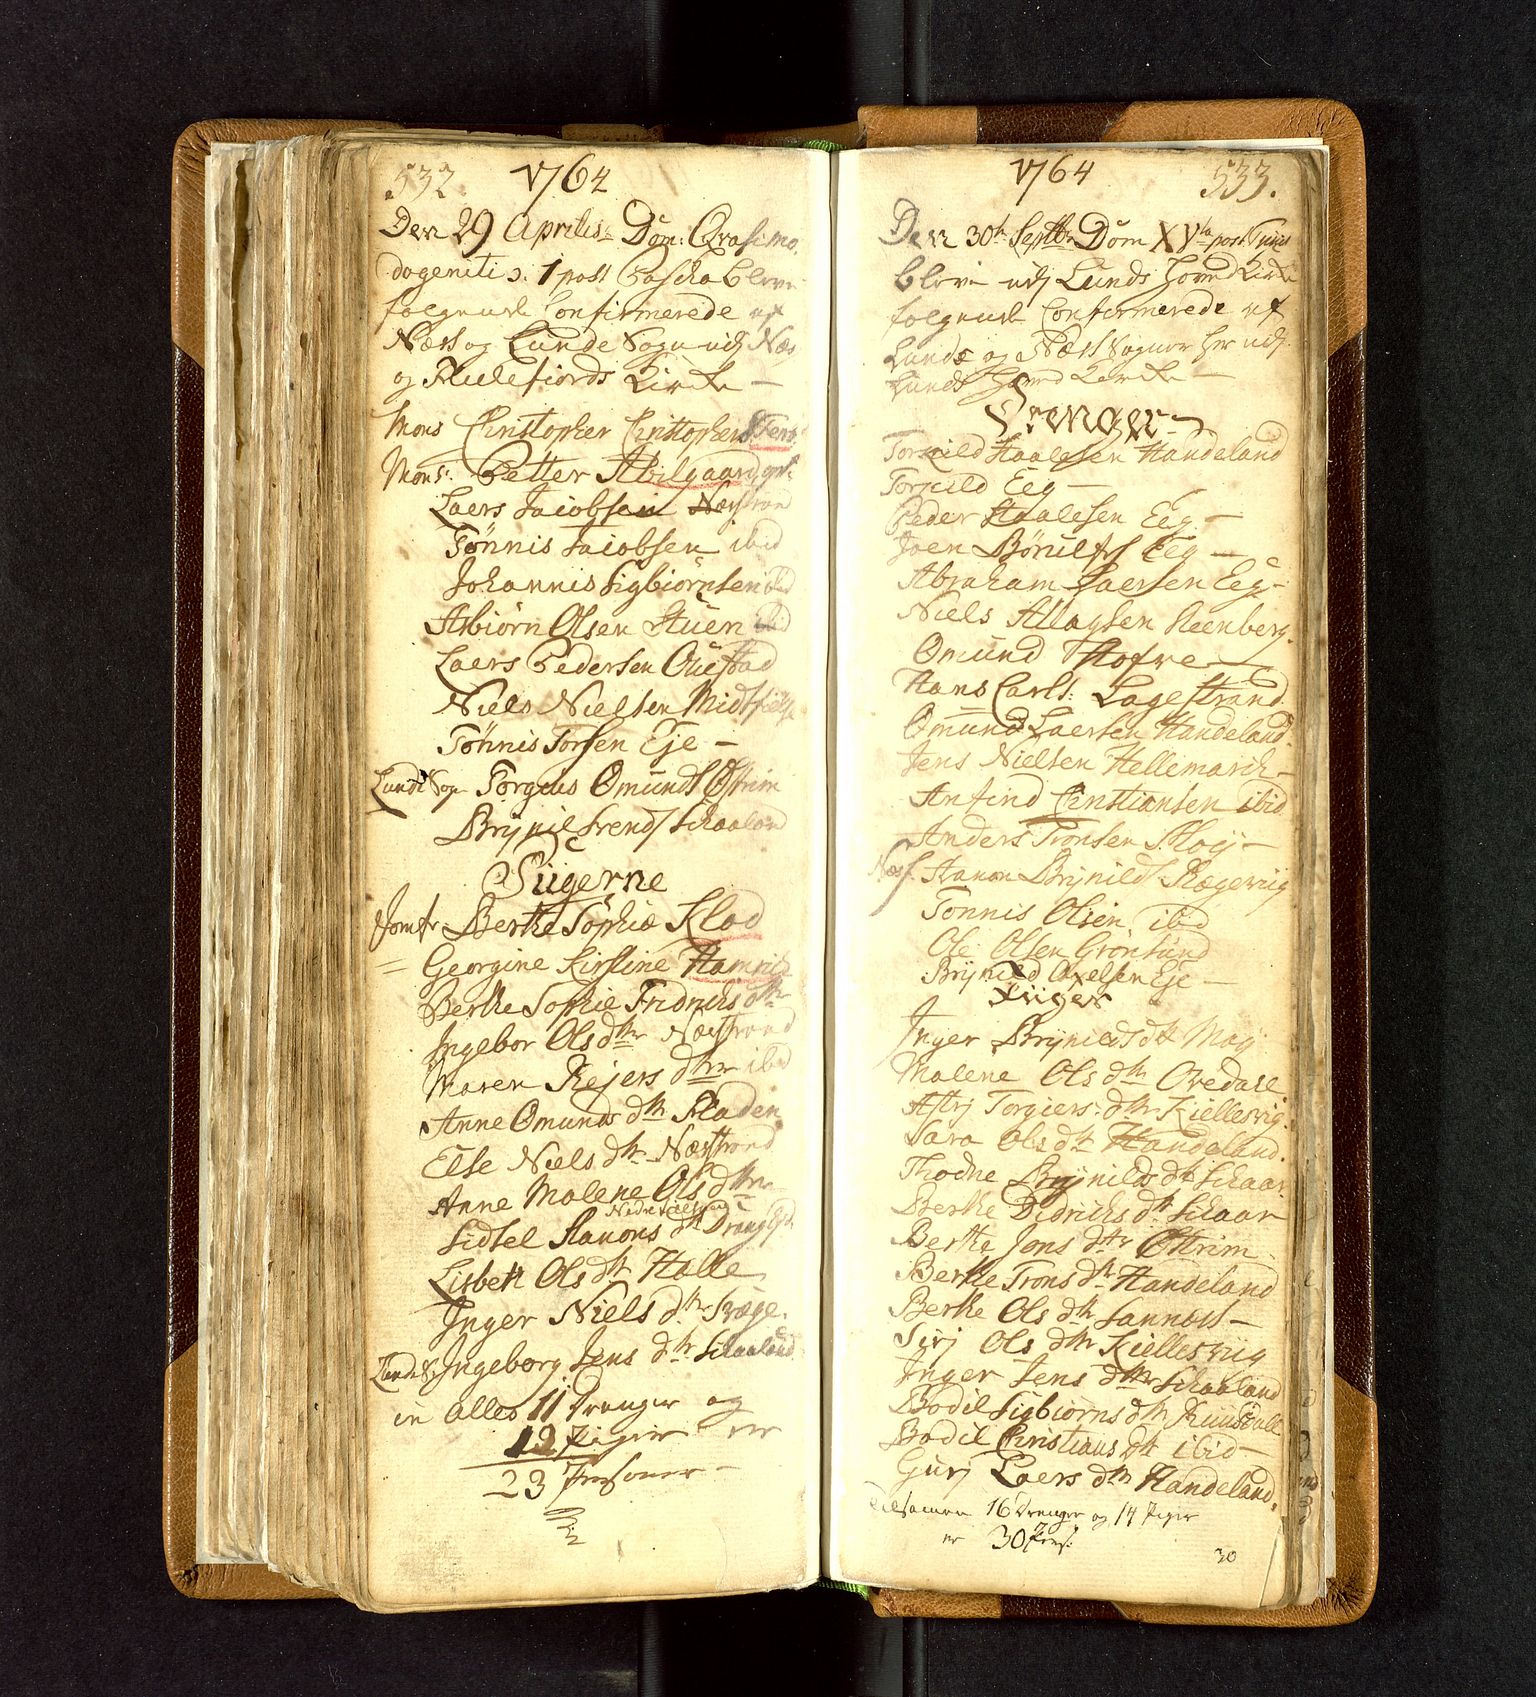 532. 1764
Den 29 Aprilis Dom: Qvasimo
dogeniti 1 post Pascha bleve
følgende Confirmerede af
Næss og Lunde Sogn udj Næs
og Flekefiords Kirke —
Mons Christopher Christophers
Mons: Petter Abilgaard
Laers Jacobsen Næsstrand
Tønnis Jacobsen ibid
Johannis Sigbiørnsen ibid
Asbiørn Olsen Stuen ibid
Laers Pedersen Qvestad
Niels Nielsen
Tønnis Torsen Eje —
Lunde Sogn Omunds Østrim
Schaaland
Pigerne
Jomfr Berthe Sophiæ Klod
= Georgine Kirstine
Berthe Sophie Fridrichs dtr
Ingebor Ols dtr Næsstrand
Maren Rejers dtr ibid
Anne Omunds dtr Fladen
Else Niels dtr Næsstrand
Anne Malene Ols dtr
Sidsel Haaons dtr
Lisbeth Ols dtr Halle
Inger Niels dtr
Lunde S: Ingeborg Jens dtr Schaaland
in alles 11 Drenger og
12 Piger er
23 Personer —
1764 533.
Den 30te Septbr Dom XVta post Trinit
bleve udj Lunds Hoved Kirke
følgende Confirmerede af
Lunds og Næss Sogner her udj
Lunds Hoved Kirke —
Drenger
Torkild Haalesen Handeland
Torkild Eeg —
Peder Haalesen Eeg —
Joen Børulfs Eeg —
Abraham Laersen Eeg —
Niels Allagsen Steenberg.
Omund Hofre
Hans Carls: Lagestrand
Omund Laersen Handeland.
Jens Nielsen Hellemarck —
Anfind Christiansen ibid
Anders Tronsen Moy —
Næss. Haaon Brynilds Rægevig
Tønnis Olsen ibid
Ole Olsen Grønsund
Brynild Axelsen Eje —
Piger
Inger Brynilds dtr Moy
Malene Ols dtr Ovedale
Astrj Torgiers: dtr Kiellesvig.
Sara Ols dtr Handeland.
Thodne Brynilds dtr Schaar
Berthe Didrichs dtr Schaar
Berthe Jons dtr Østrim
Berthe Trons dtr Handeland
Berthe Ols dtr Sannoss —
Sirj Ols dtr Kiellesviig
Inger Jens dtr Schaaland
Bodil Sigbiørns dtr
Bodil Christians dtr ibid —
Gurj Laers dtr Handeland.
Tilsamen 16 Drenger og 14 Piger
er 30 Pers:
30